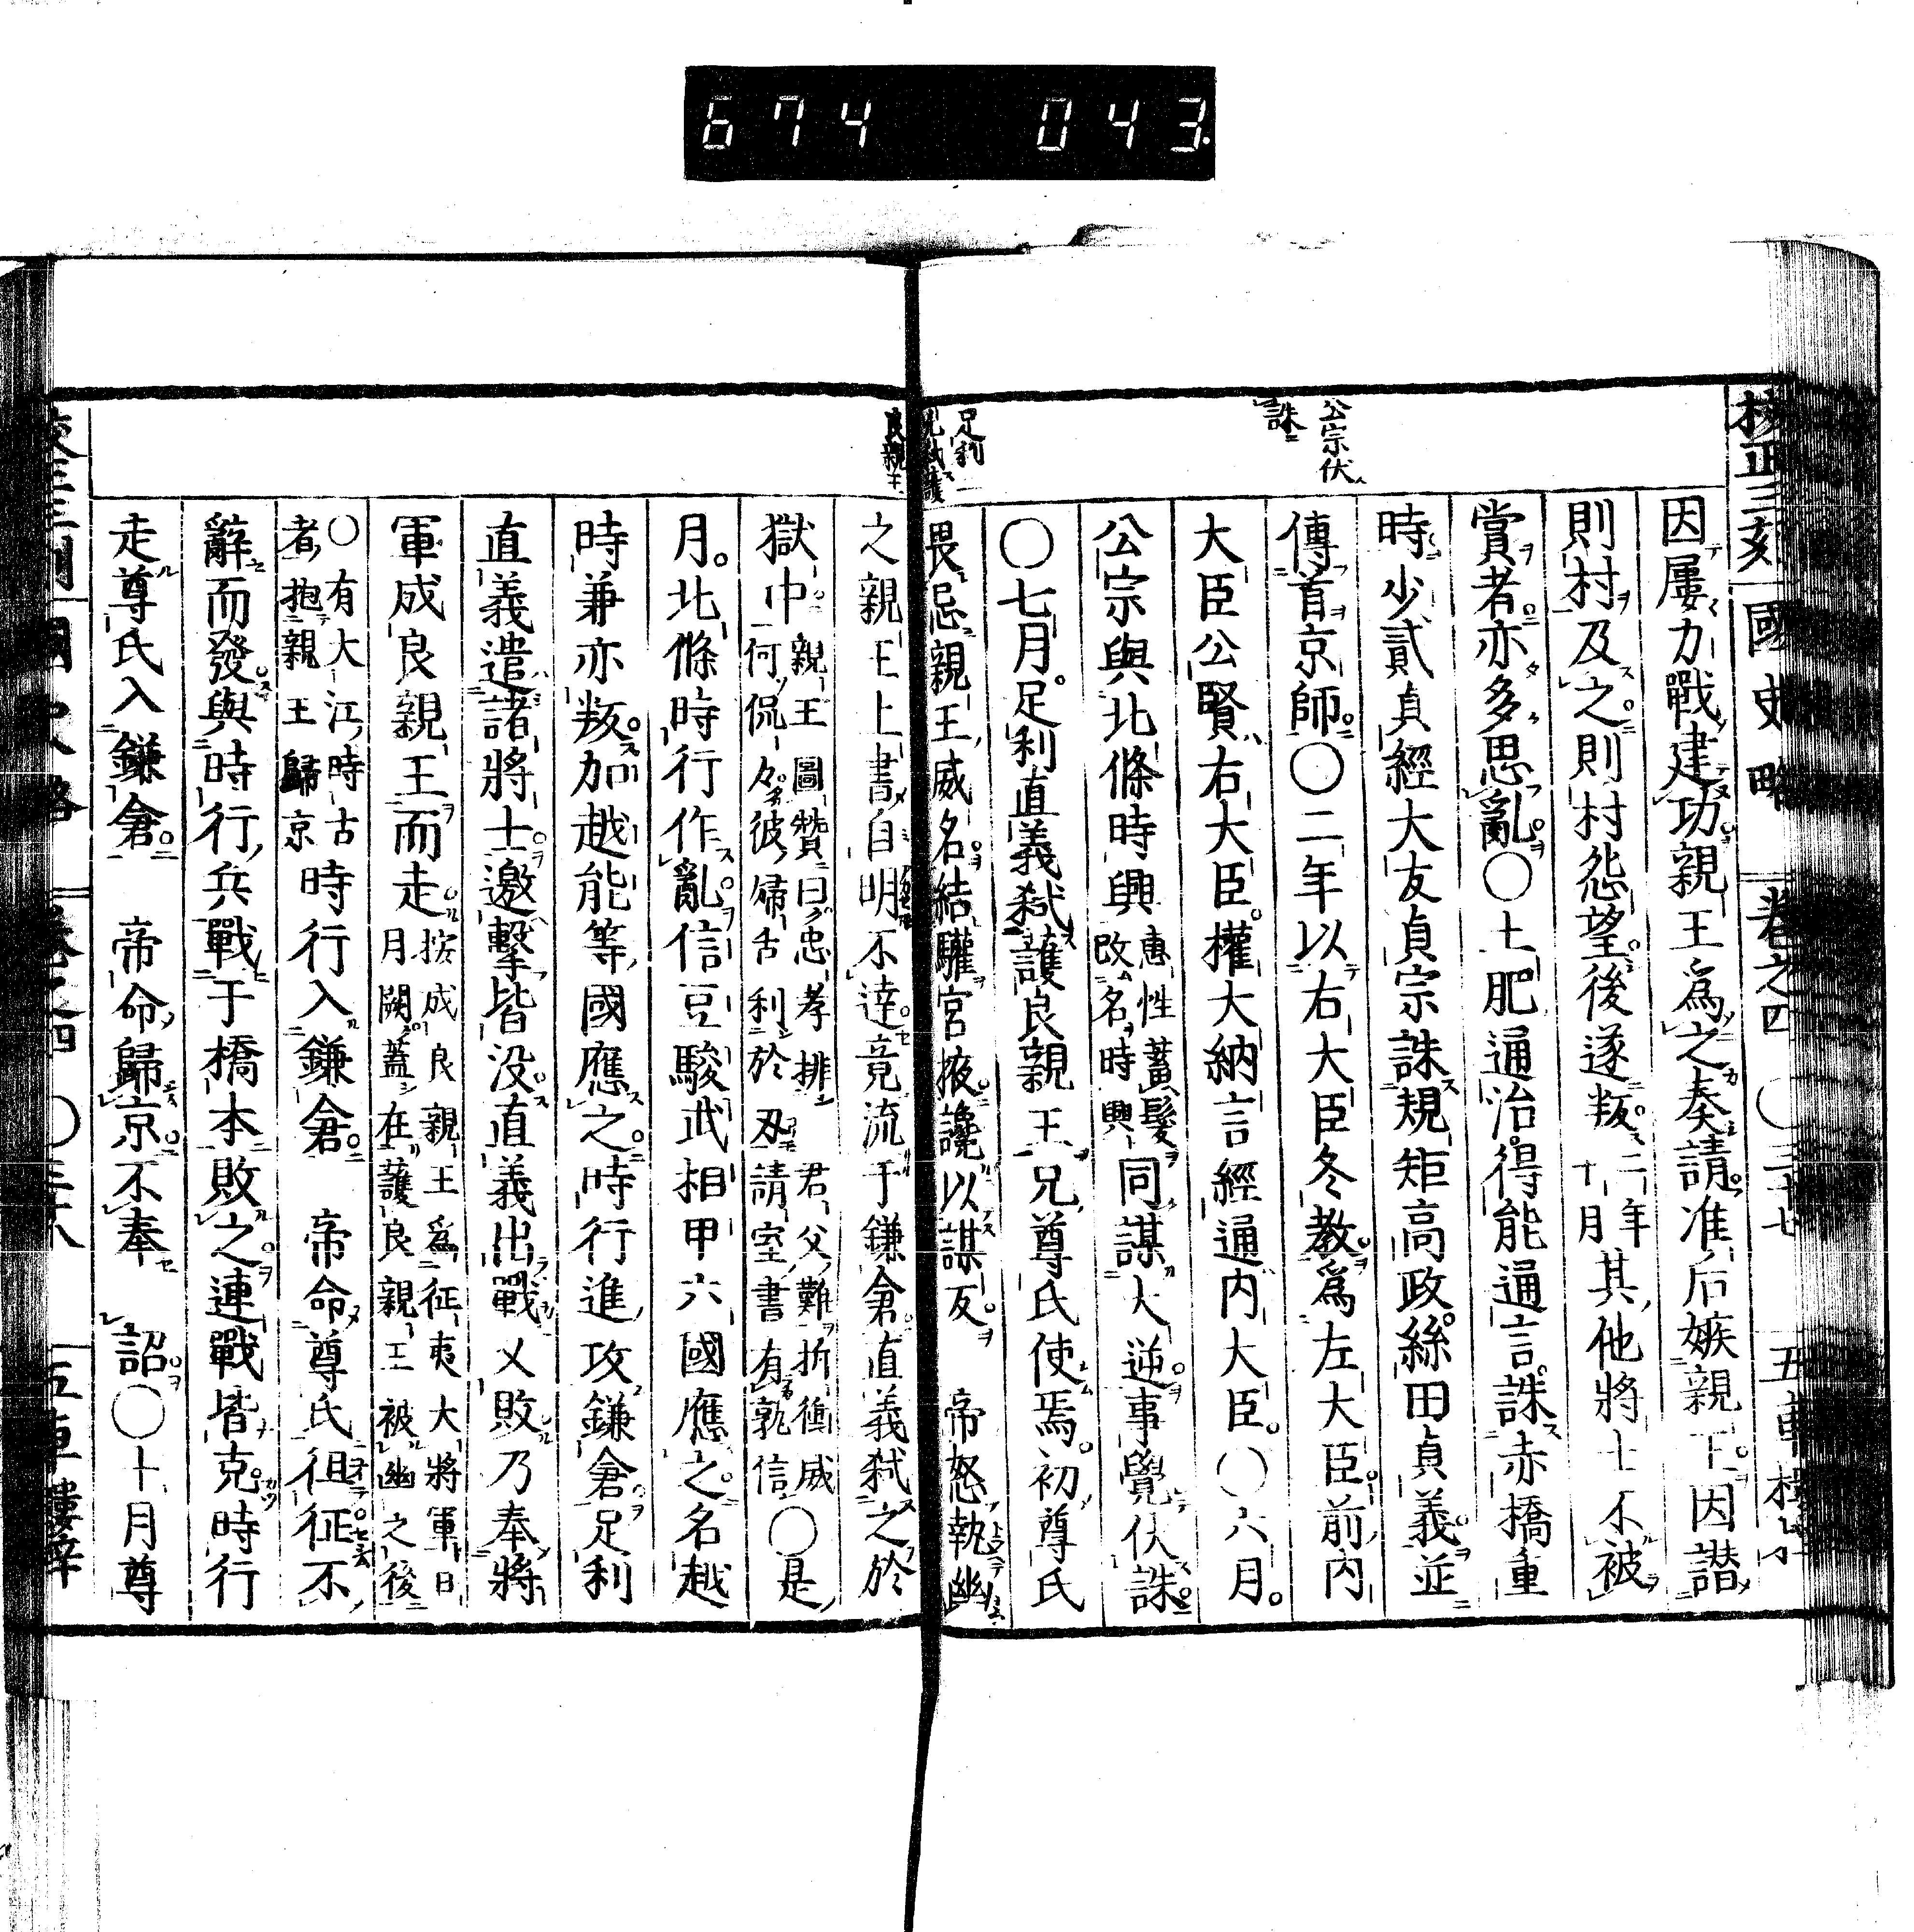 674 043
校正三刻 國史略 卷之四 〇三十七 五車樓
公宗伏
誅
足利
良親王
因屢力戰建功親王爲之奏請准后嫉親王因譖
則村及之則村怨望後遂叛二年十月其他將士不被
賞者亦多思亂〇土肥通治得能通言誅赤橋重
時少貳貞經大友貞宗誅規矩高政絲田貞義並
傳首京師〇二年以右大臣冬教爲左大臣前內
大臣公賢右大臣權大納言經通內大臣〇六月
公宗與北條時興惠性蓄髮改名時興同謀大逆事覺伏誅
〇七月足利直義弑護良親王兄尊氏使焉初尊氏
畏忌親王威名結驩宮掖讒以謀反 帝怒執幽
之親王上書自明不達竟流于鎌倉直義弑之於
獄中親王圖贊曰忠孝排君父難折衝威何侃々彼歸舌利於刃請室書有孰信〇是
月北條時行作亂信豆駿武相甲六國應之名越
時兼亦叛加越能等國應之時行進攻鎌倉足利
直義遣諸將士邀擊皆沒直義出戰乂敗乃奉將
軍成良親王而走按成良親王爲征夷大將軍日月闕蓋在護良親王被幽之後
〇有大江時古者抱親王歸京時行入鎌倉 帝命尊氏徂征不
辭而發與時行兵戰于橋本敗之連戰皆克時行
走尊氏入鎌倉 帝命歸京不奉 詔〇十月尊